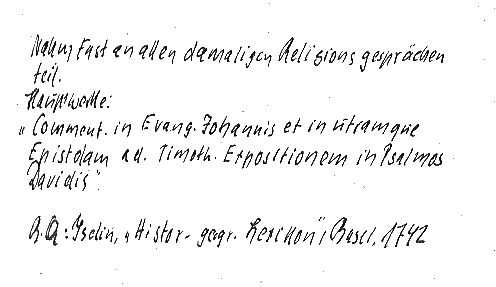 Nahm fast an allen damaligen Religions gesprächen
teil.
Hauptwerke:
"Comment. in Evang. Johannis et in utramque
Epistolam ad. Timoth. Expositionem in Psalmos
Davidis".
Iselin, "Histor- geogr. Lexikon", Basel, 1742